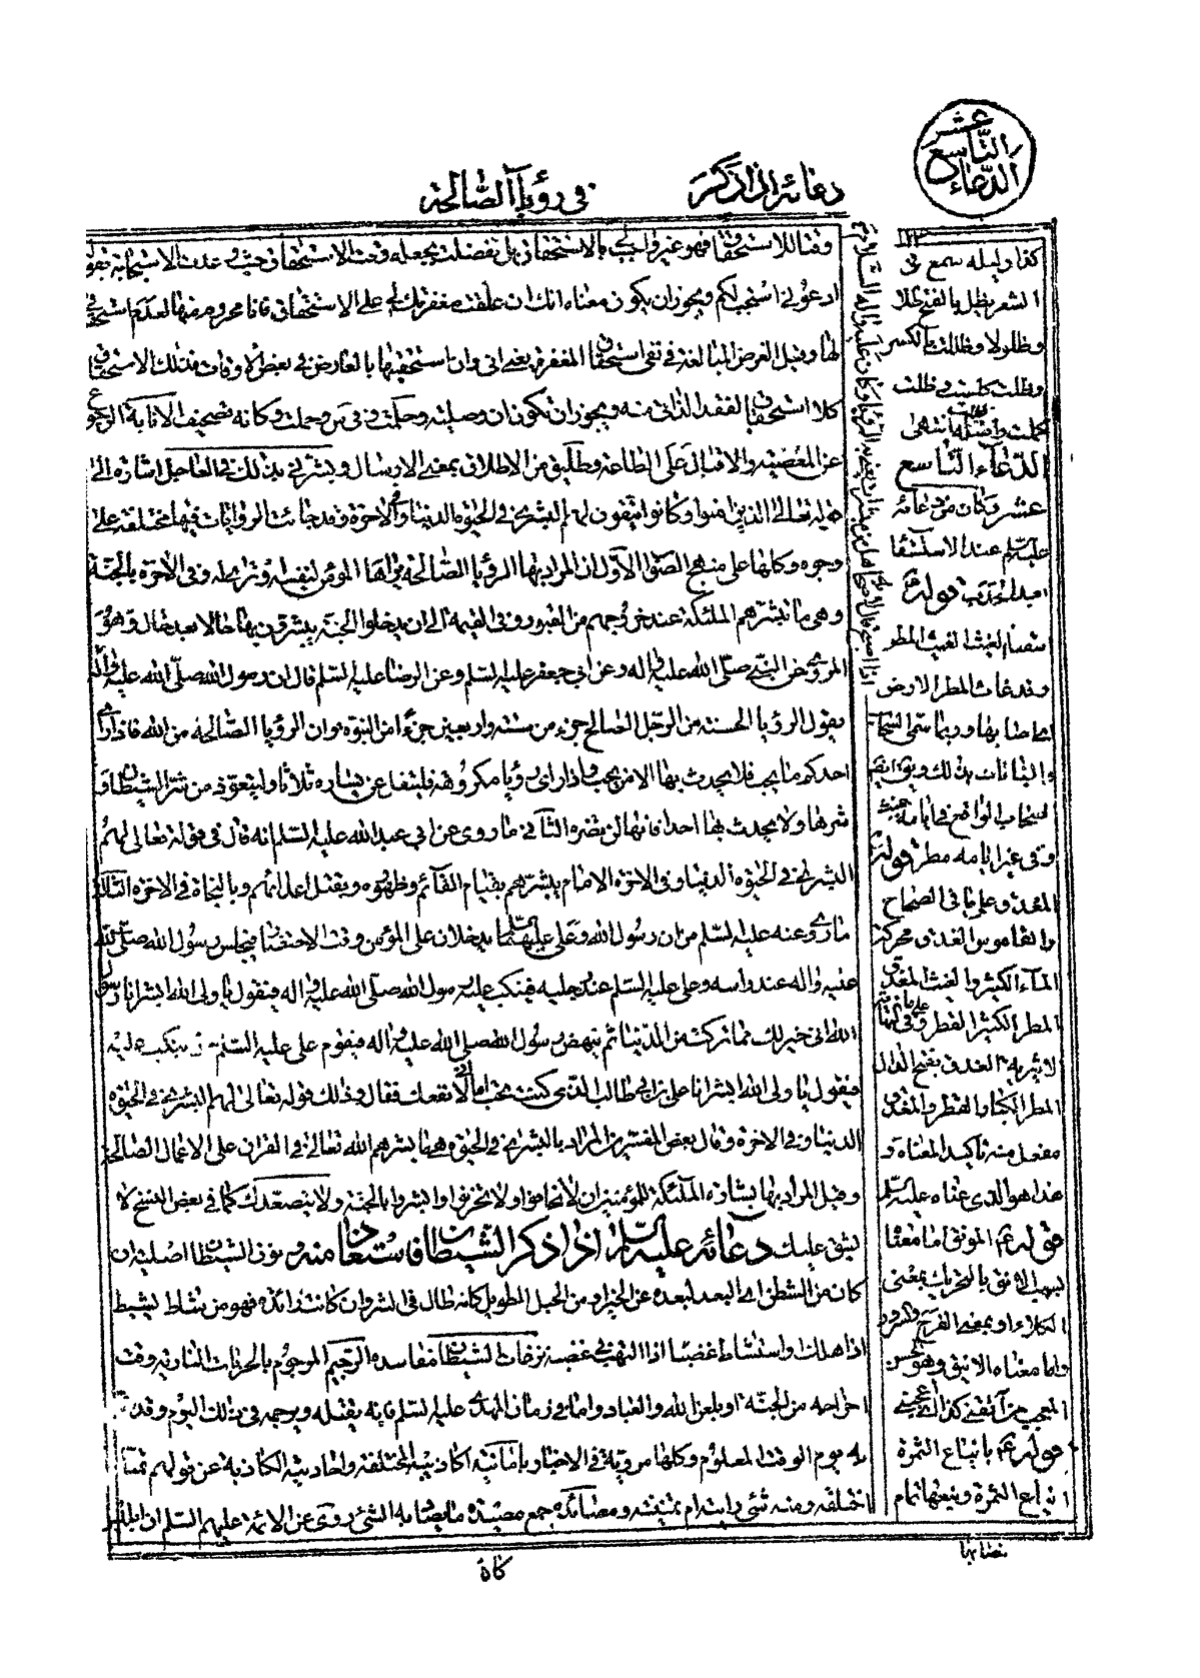 الدعاء التاسع عشر
دعائه اذا ذكر
في رؤيا الصالحة
وقتا للاستحقاق فهو غير واجب بالاستحقاق بل تفضلت بجعله وقت الاستحقاق حيث وعدت الاستجابة بقولك
ادعوني استجب لكم ويجوز ان يكون معناه انك ان علقت مغفرتك لي على الاستحقاق فانا محروم منها لعدم استحقاقي
لها وقيل الغرض المبالغة في نفي استحقاق المغفرة يعني اني وان استحقيتها بالعارض في بعض الاوقات فذلك الاستحقاق
كلا استحقاق لفقد الذاتي منه ويجوز ان تكون ان وصلية وحلمت وفي س وحملت وكانه تصحيف الانابة الرجوع
عن المعصية والاقبال على الطاعة وطليق من الاطلاق بمعنى الارسال وبشرني بذلك في العاجل اشارة الى
قوله تعالى الذين امنوا وكانوا يتقون لهم البشرى في الحيوة الدنيا وفي الاخرة وقد جائت الروايات فيها مختلفة على
وجوه وكلها على منهج الصواب الاول ان المراد بها الرؤيا الصالحة يراها المؤمن لنفسه وترى له وفي الاخرة بالجنة
وهي ما تبشرهم الملئكة عند خروجهم من القبور وفي القيمة الى ان يدخلوا الجنة يبشرون بها حالا بعد حال وهو
المروي عن النبي صلى الله عليه واله وعن ابي جعفر عليه السلم وعن الرضا عليه السلم قال ان رسول الله صلى الله عليه واله
يقول الرؤيا الحسنة من الرجل الصالح جزء من ستة واربعين جزءا من النبوة وان الرؤيا الصالحة من الله فاذا راى
احدكم ما يحب فلا يحدث بها الا من يحب واذا راى رؤيا مكروهة فليتفل عن يساره ثلاثا وليتعوذ من شر الشيطان و
شرها ولا يحدث بها احدا فانها لن تضره الثاني ما روى عن ابي عبد الله عليه السلم انه قال في قوله تعالى لهم
البشرى في الحيوة الدنيا وفي الاخرة الامام يبشرهم بقيام القائم وظهوره وبقتل اعدائهم وبالنجاة في الاخرة الثالث
ما روى عنه عليه السلم من ان رسول الله وعلي عليهما السلم يدخلان على المؤمن وقت الاحتضار فيجلس رسول الله صلى الله
عليه واله عند راسه وعلي عليه السلم عند رجليه فينكب عليه رسول الله صلى الله عليه واله فيقول يا ولي الله ابشر انا رسول
الله اني خير لك مما تركت من الدنيا ثم ينهض رسول الله صلى الله عليه واله فيقوم علي عليه السلم فينكب عليه
فيقول يا ولي الله ابشر انا علي بن ابي طالب الذي كنت تحب اما لانفعك فقال وذلك قوله تعالى لهم البشرى في الحيوة
الدنيا وفي الاخرة وقال بعض المفسرين المراد بالبشرى في الحيوة هي ما بشرهم الله تعالى في القران على الاعمال الصالحة
وقيل المراد بها بشارة الملئكة للمؤمنين ان لا تخافوا ولا تحزنوا وابشروا بالجنة ولا يتصعدك كما في بعض النسخ لا
يشق عليك دعائه عليه السلم اذا ذكر الشيطان فاستعاذ منه ونون الشيطان اصلية ان
كان من الشطن اي البعد لبعده عن الخير او من الحبل الطويل كانه طال في الشر وان كانت زائدة فهو من شاط يشيط
اذا هلك او استشاط غضبا اذا التهب في غضبه نزغات الشيطان مفاسده الرجيم المرجوم بالحربات النارية وقت
اخراجه من الجنة او بلعن الله والعباد واما في زمان المهدي عليه السلم فانه يقتله ويرجمه في ذلك اليوم وقد
يوم الوقت المعلوم وكلها مروية في الاخبار بامانيه اكاذيبه المختلقة واحاديثه الكاذبة من قولهم تمنا
اختلقه ومنه شيء رايته ام تمنيته ومصائده جمع مصيدة ما يصاد به الشيء روى عن الائمة عليهم السلم ان ابليس
كان
كذا وليله سمع في
الشعر يظل بالفتح ظلا
وظلولا وظللت بالكسر
وظلت كلست وظلت
الدعاء التاسع
عشر وكان من دعائه
عليه السلم عند الاستسقاء
بعد الجدب قوله
اسقنا الغيث الغيث المطر
وقد غاث المطر الارض
اصابها وربما سمى السحاب
والنبات بذلك
وفي غير ايامه مطر قوله
المغدق على ما في الصحاح
والقاموس الغدق محركة
الماء الكثير والغيث المغدق
المطر الكثير القطر وفي نهاية
لاثيرية الغدق بفتح الدال
المطر الكبار القطر والمغدق
مفعل منه تاكيد المعناه و
هذا هو الذي عناه عليه السلم
قوله المونق اما معناه
الكلاء او بمعنى الفرح والسرور
واما معناه الانيق وهو الحسن
المعجب من آنقني كذا اي اعجبني
قوله بايناع الثمرة
ايناع الثمرة وينعها تمام
نضايها